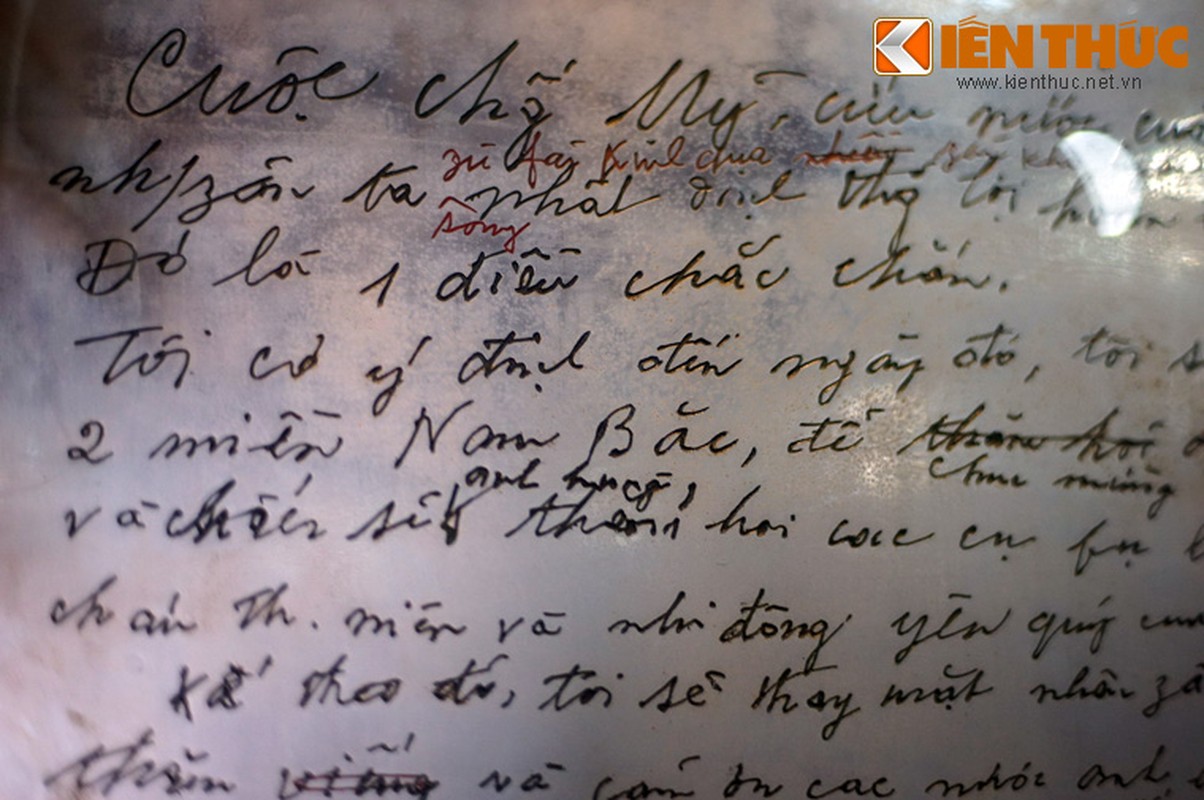 KIẾN THỨC
www.kienthuc.net.vn
Cuộc chố Mỹ, cứu nước
zù fải kinh qua
nh/zân ta nhất định thắ lợi
sống
Đó là 1 điều chắc chắn.
Tôi có ý định đến ngày đó, tôi
2 miền Nam Bắc, để thăm hỏi
chúc mừng
anh hùng,
và chiến sĩ thăm hỏi các cụ fụ
cháu th. miên và nhi đồng yêu quý
Kế theo đó, tôi sẽ thay mặt nhân
thăm viếng và cám ơn các nước anh